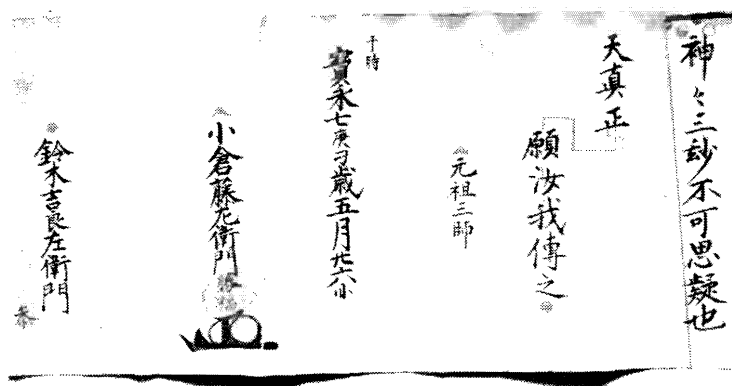 神々三妙不可思疑也
天真正
願汝我傳之
元祖三師
于時
寶永七庚刁歳五月廿六
小倉藤左衛門
鈴木吉良左衛門